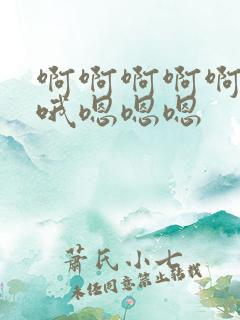 啊啊啊啊啊
哦嗯嗯嗯
萧氏小七
未经同意禁止转载